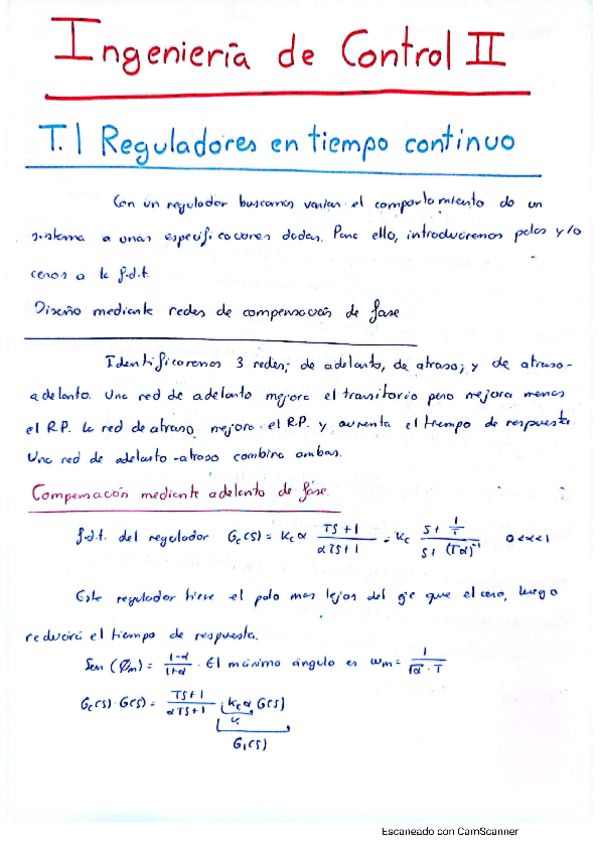 Ingeniería de Control II
T.1 Reguladores en tiempo continuo
Con un regulador buscamos variar el comportamiento de un
sistema a unas especificaciones dadas. Para ello, introduciremos polos y/o
ceros a la f.d.t.
Diseño mediante redes de compensación de fase
Identificaremos 3 redes; de adelanto, de atraso; y de atraso-
adelanto. Una red de adelanto mejora el transitorio pero mejora menos
el R.P. la red de atraso mejora el R.P. y aumenta el tiempo de respuesta
Una red de adelanto-atraso combina ambas.
Compensación mediante adelanto de fase.
f.d.t. del regulador Gc(s) = Kc α (Ts+1)/(αTs+1) = Kc (s+1/T)/(s+(Tα)^-1) 0<α<1
Este regulador tiene el polo mas lejos del eje que el cero, luego
reducirá el tiempo de respuesta.
Sen (Øm) = (1-α)/(1+α). El máximo ángulo es ωm = 1/(√α · T)
Gc(s)·G(s) = (Ts+1)/(αTs+1) · Kc α G(s)
K
G1(s)
Escaneado con CamScanner